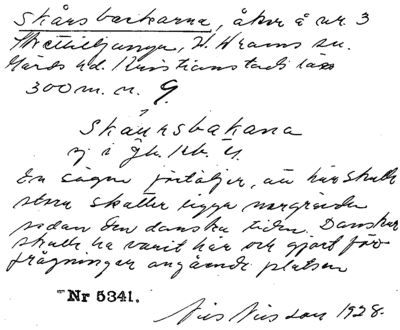 Skårsbackarna, åker å nr. 3
Skättiljunga, V. Vrams sn.
Gärds hd. Kristianstads län
300 m. n. G.
skårsbakana
ej i jb. kb. G.
En sägen förtäljer, att här skulle
stora skatter ligga nergrävda
sedan den danska tiden. Danskar
skulle ha varit här och gjort för-
frågningar angående platsen
Nr 5341.
Nils Nilsson 1928.